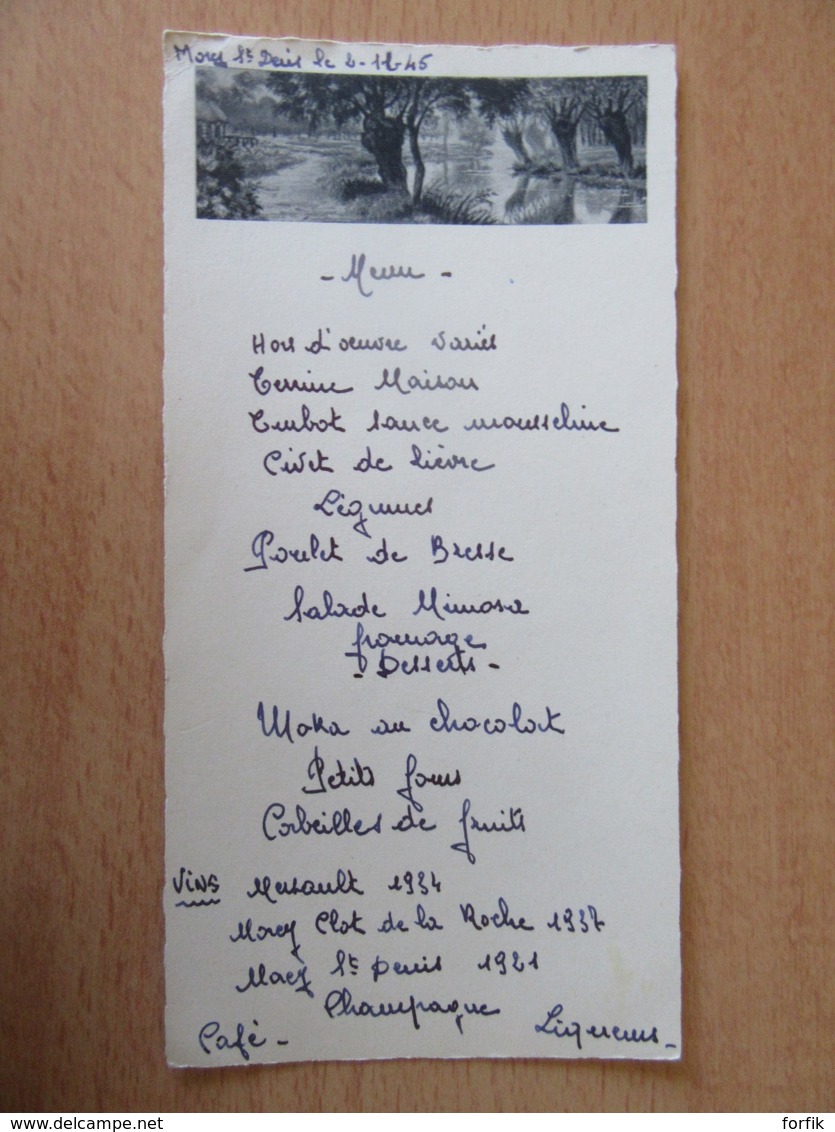 Morey St Denis le 2-12-45
- Menu -
Hors d'oeuvre variés
Terrine Maison
Turbot sauce mousseline
Civet de lièvre
Légumes
Poulet de Bresse
Salade Mimosa
fromage
- Desserts -
Moka au chocolat
Petits fours
Corbeilles de fruits
Vins Mersault 1934
Morey Clot de la Roche 1937
Morey St Denis 1921
Champagne
Café - Liqueurs -
delcampe.net
forfik